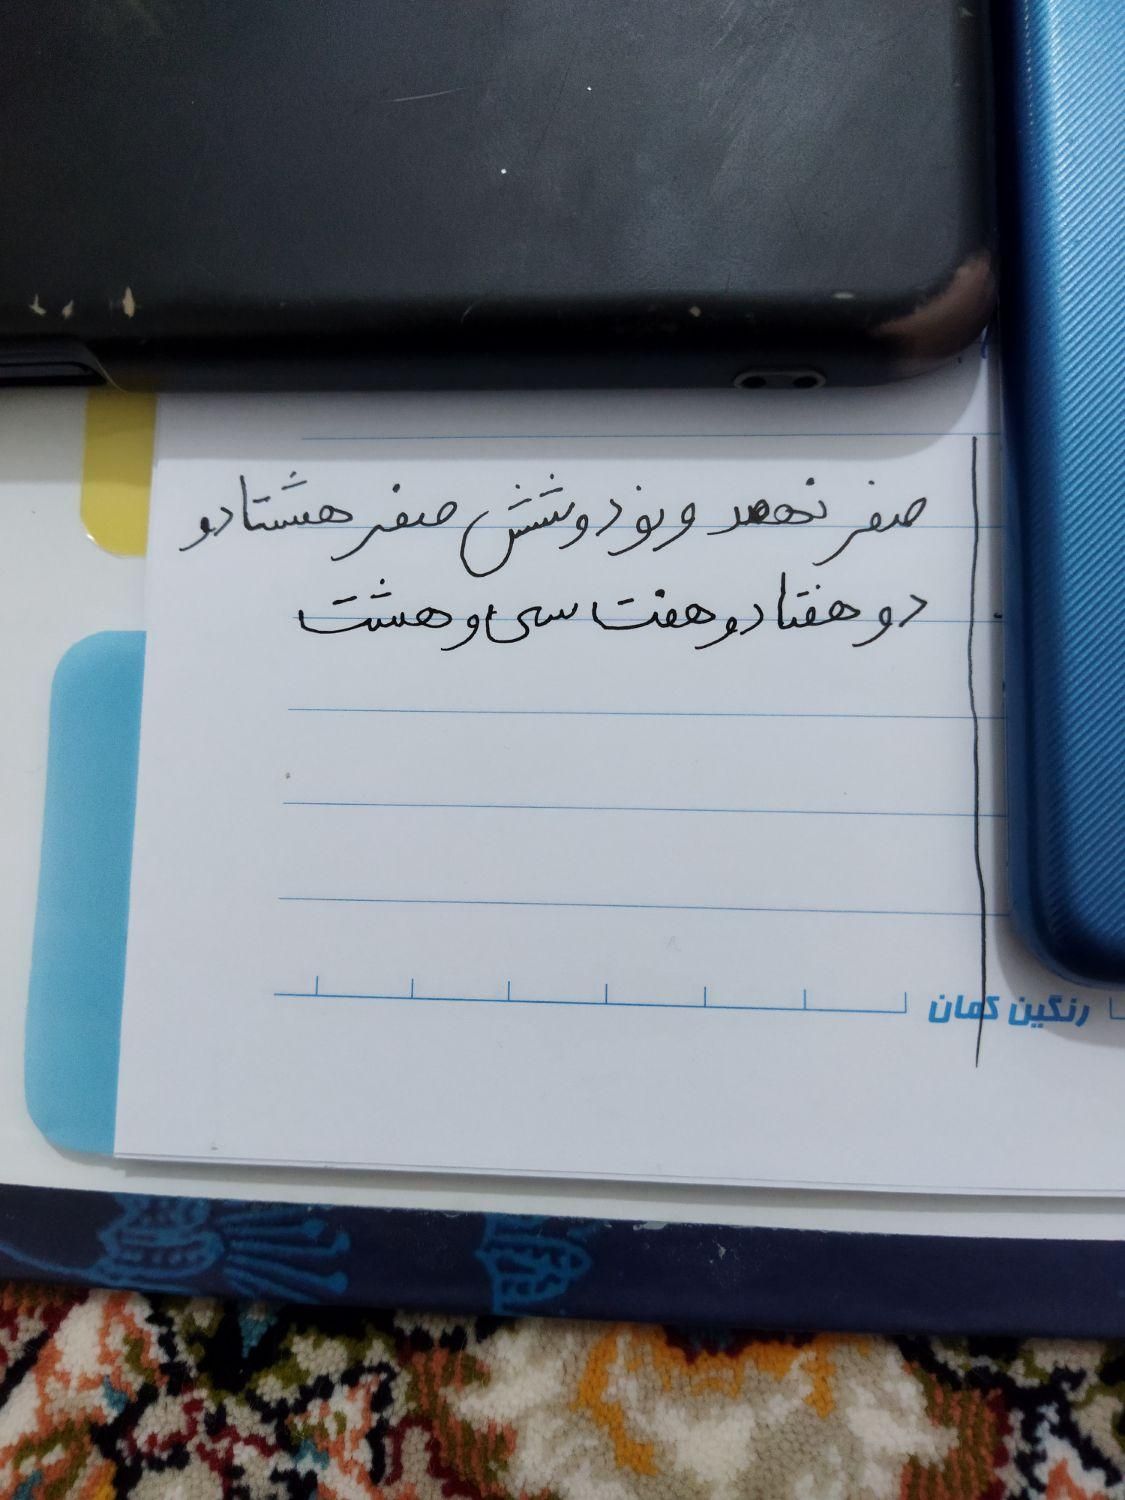 صفر نهصد و نود و شش صفر هشتاد و
دو هفتاد و هفت سی و هشت
رنگین کمان